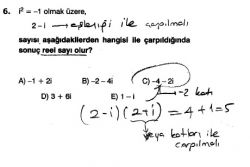 6. i² = –1 olmak üzere,
2 - i → eşleniği ile çarpılmalı
sayısı aşağıdakilerden hangisi ile çarpıldığında
sonuç reel sayı olur?
A) –1 + 2i B) –2 – 4i C) –4 – 2i
-2 katı
D) 3 + 6i E) 1 – i
(2-i)(2+i) = 4+1=5
veya katları ile
çarpılmalı